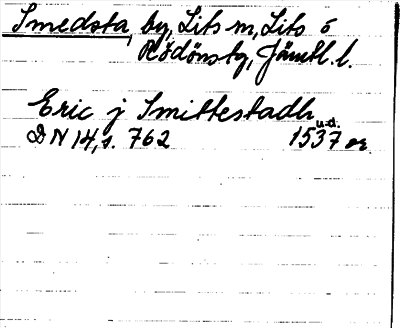 Smedsta, by, Lits sn, Lits o
Rödönstg, Jämtl. l.
Eric j Smittestadh
u.d.
DN 14, s. 762 1537 or.